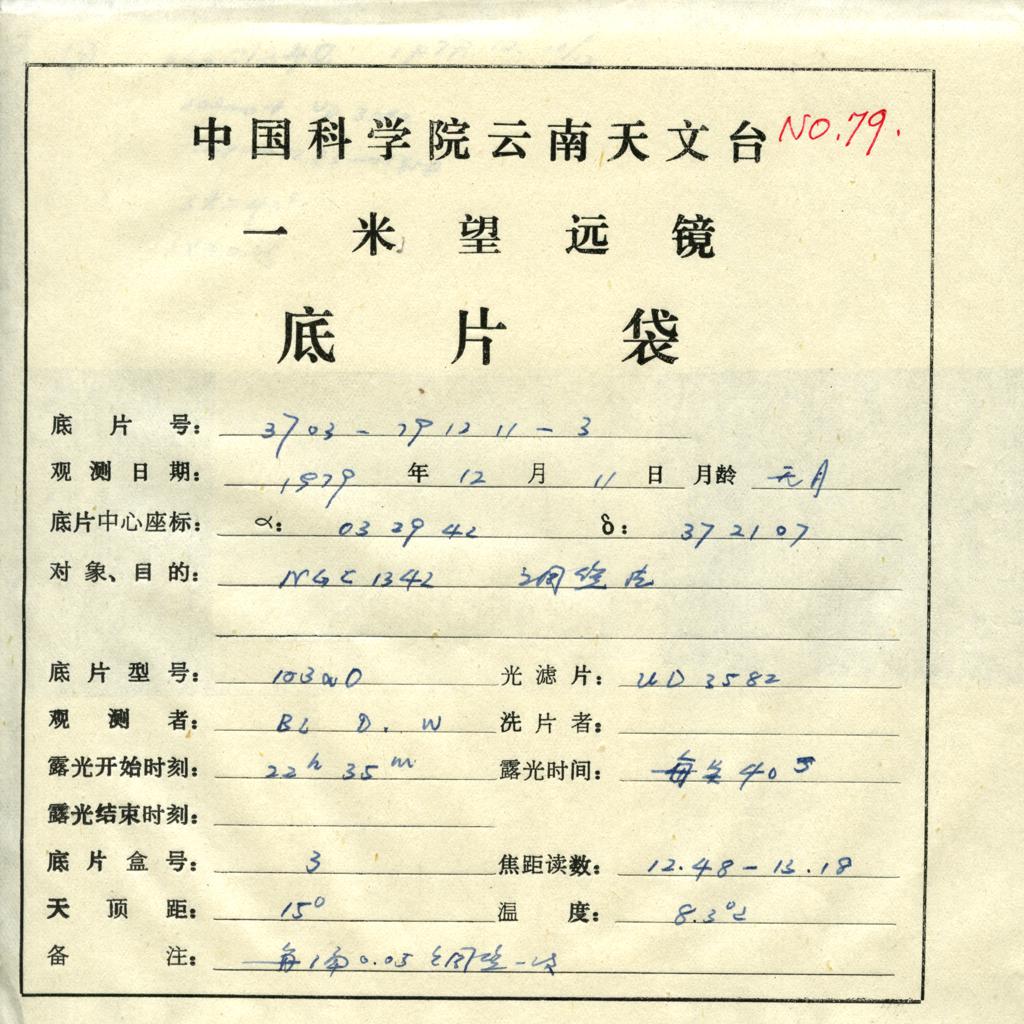 中国科学院云南天文台 NO.79.
一米望远镜
底片袋
底片号: 3703-791211-3
观测日期: 1979 年 12 月 11 日 月龄 无月
底片中心座标: α: 03 29 42 δ: 37 21 07
对象、目的: NGC 1342
底片型号: 103aO 光滤片: UD 3582
观测者: BL D. W 洗片者:
露光开始时刻: 22h 35m 露光时间: 每 40s
露光结束时刻:
底片盒号: 3 焦距读数: 12.48-13.18
天顶距: 15° 温度: 8.3°C
备注: 每 0.05 一次